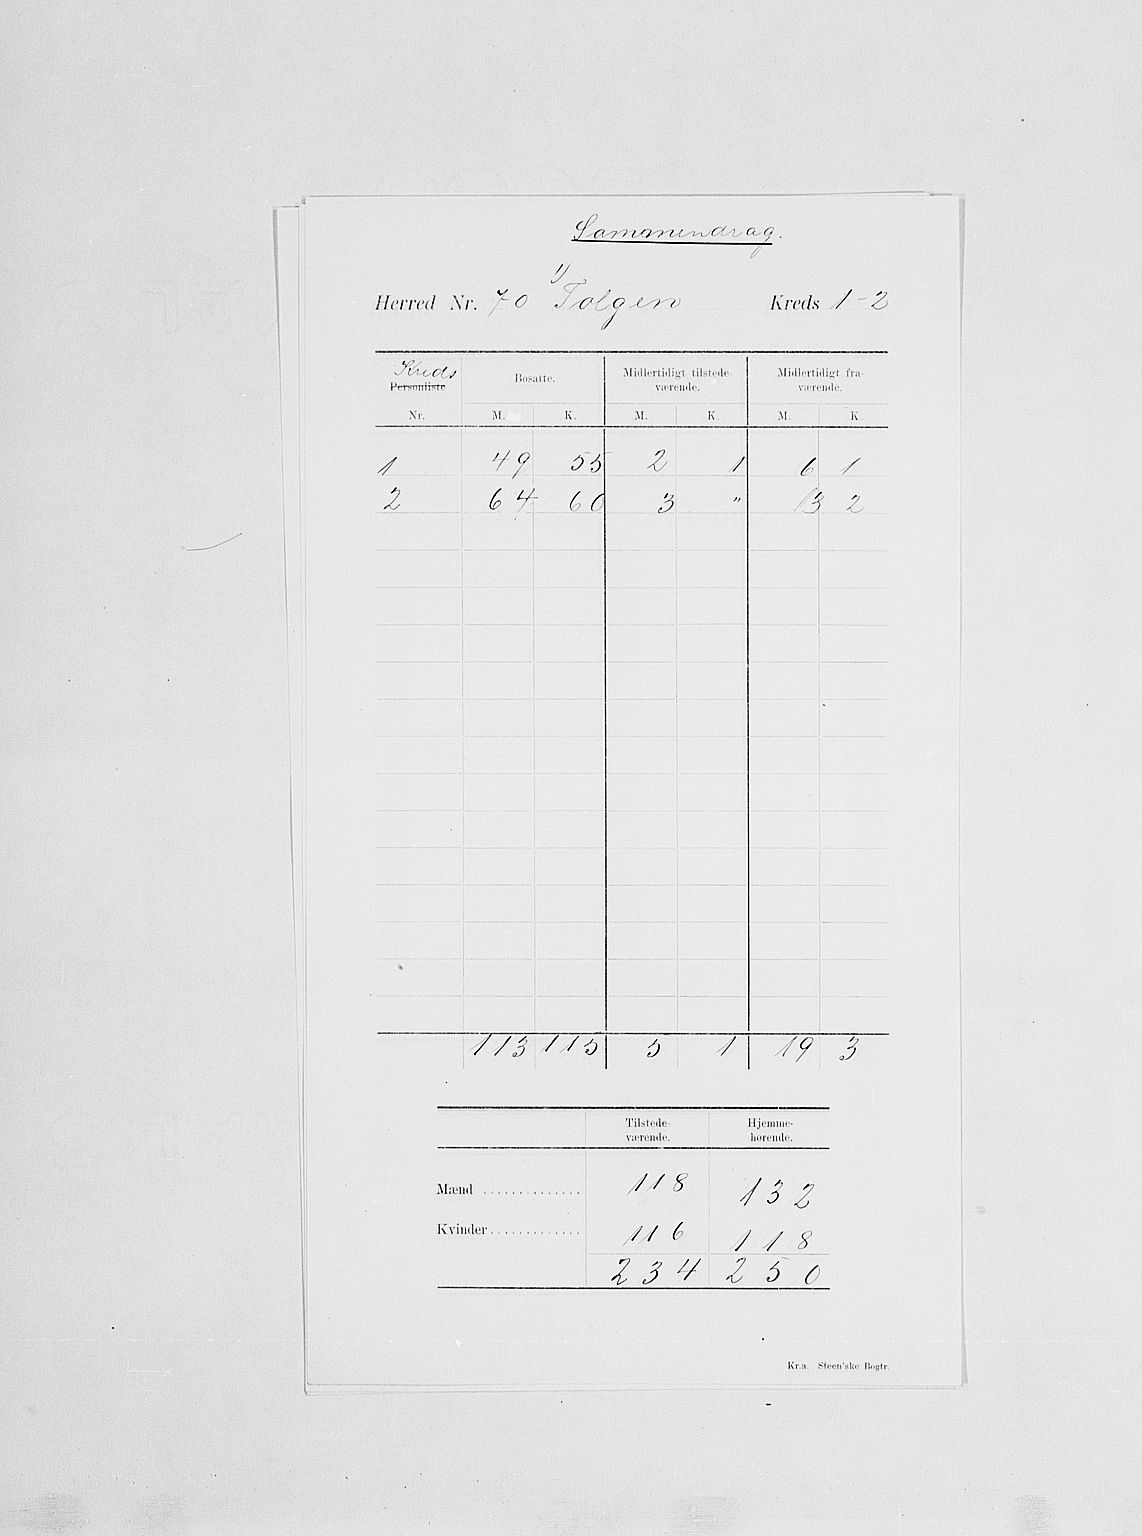 Sammendrag.
1)
Herred Nr. 70 Tolgen Kreds 1-2
Kreds
Personliste Bosatte. Midlertidigt tilstede-værende. Midlertidigt fra-værende.
Nr. M. K. M. K. M. K.
1 49 55 2 1 6 1
2 64 60 3 " 13 2
113 115 5 1 19 3
Tilstede-værende. Hjemme-hørende.
Mænd .............. 118 132
Kvinder ............. 116 118
234 250
Kr.a. Steen'ske Bogtr.